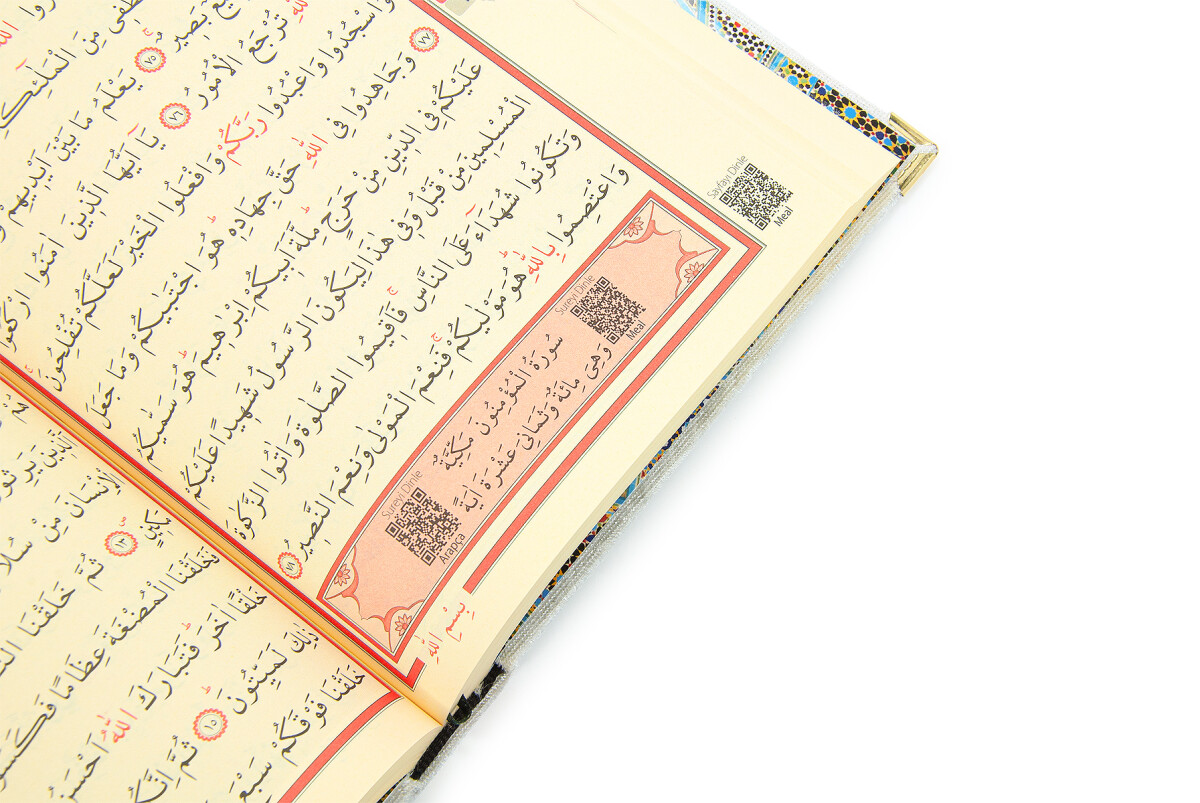 مِنَ الْمَلٰٓئِكَةِ
بَصٖيرٌۚ ﴿٧٥﴾ يَعْلَمُ مَا بَيْنَ اَيْدٖيهِمْ
اللّٰهِ تُرْجَعُ الْاُمُورُ ﴿٧٦﴾ يَٓا اَيُّهَا الَّذٖينَ اٰمَنُوا ارْكَعُوا
وَاسْجُدُوا وَاعْبُدُوا رَبَّكُمْ وَافْعَلُوا الْخَيْرَ لَعَلَّكُمْ تُفْلِحُونَۚ
﴿٧٧﴾ وَجَاهِدُوا فِى اللّٰهِ حَقَّ جِهَادِهٖؕ هُوَ اجْتَبٰيكُمْ وَمَا جَعَلَ
عَلَيْكُمْ فِى الدّٖينِ مِنْ حَرَجٍؕ مِلَّةَ اَبٖيكُمْ اِبْرٰهٖيمَؕ هُوَ سَمّٰيكُمُ
الْمُسْلِمٖينَ مِنْ قَبْلُ وَفٖى هٰذَا لِيَكُونَ الرَّسُولُ شَهٖيدًا عَلَيْكُمْ
وَتَكُونُوا شُهَدَٓاءَ عَلَى النَّاسِۚ فَاَقٖيمُوا الصَّلٰوةَ وَاٰتُوا الزَّكٰوةَ
وَاعْتَصِمُوا بِاللّٰهِؕ هُوَ مَوْلٰيكُمْۚ فَنِعْمَ الْمَوْلٰى وَنِعْمَ النَّصٖيرُ ﴿٧٨﴾
Sayfayı Dinle
Meal
Sureyi Dinle
Meal
سُورَةُ الْمُؤْمِنُونَ مَكِّيَّةٌ
وَهِىَ مِائَةٌ وَثَمَانِىَ عَشْرَةَ اٰيَةً
Sureyi Dinle
Arapça
بِسْمِ اللّٰهِ
اَلَّذٖينَ يَرِثُونَ
الْاِنْسَانَ مِنْ
مَكٖينٍ ﴿١٣﴾ ثُمَّ خَلَقْنَا
فَخَلَقْنَا الْمُضْغَةَ عِظَامًا
خَلْقًا اٰخَرَؕ فَتَبَارَكَ اللّٰهُ اَحْسَنُ
ذٰلِكَ لَمَيِّتُونَؕ ﴿١٥﴾ ثُمَّ اِنَّكُمْ
خَلَقْنَا فَوْقَكُمْ سَبْعَ